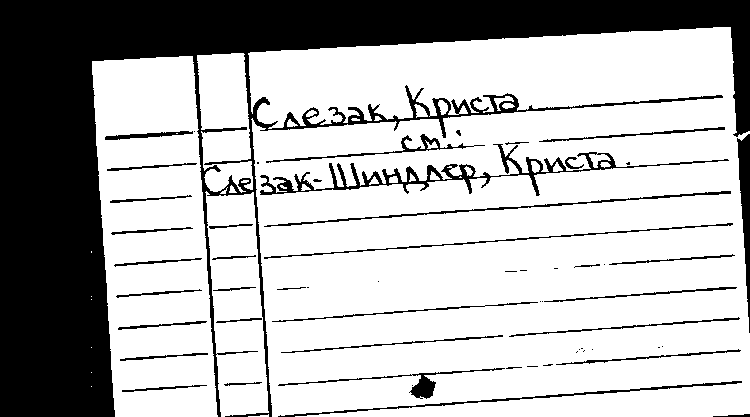 Слезак, Криста.
см.:
Слезак-Шиндлер, Криста.